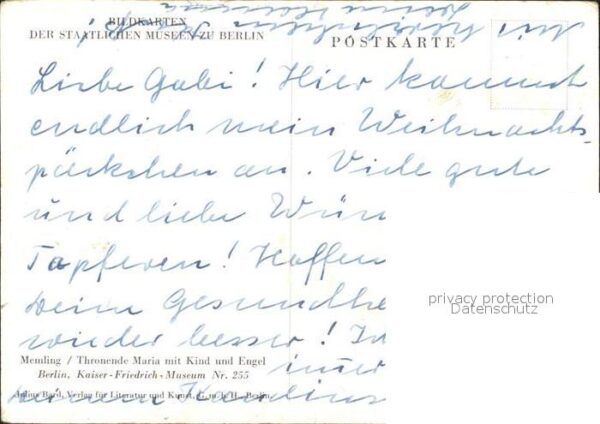 BILDKARTEN
DER STAATLICHEN MUSEEN ZU BERLIN
POSTKARTE
Liebe Gabi! Hier kommt
endlich mein Weihnachts-
päckchen an. Viele gute
und liebe Wün
Tapferen! Hoffen
Deine Gesundhe
wieder besser! In
immer
privacy protection
Datenschutz
Memling / Thronende Maria mit Kind und Engel
Berlin, Kaiser-Friedrich-Museum Nr. 255
Julius Bard, Verlag für Literatur und Kunst, G.m.b.H., Berlin